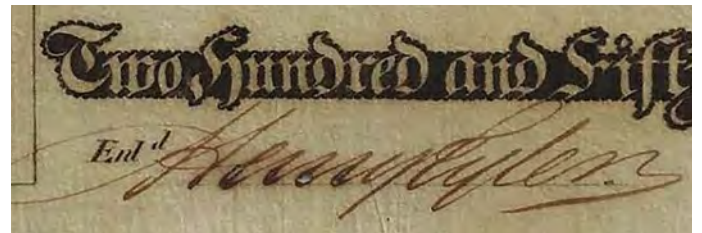 Two Hundred and Fift
Ent d Henry